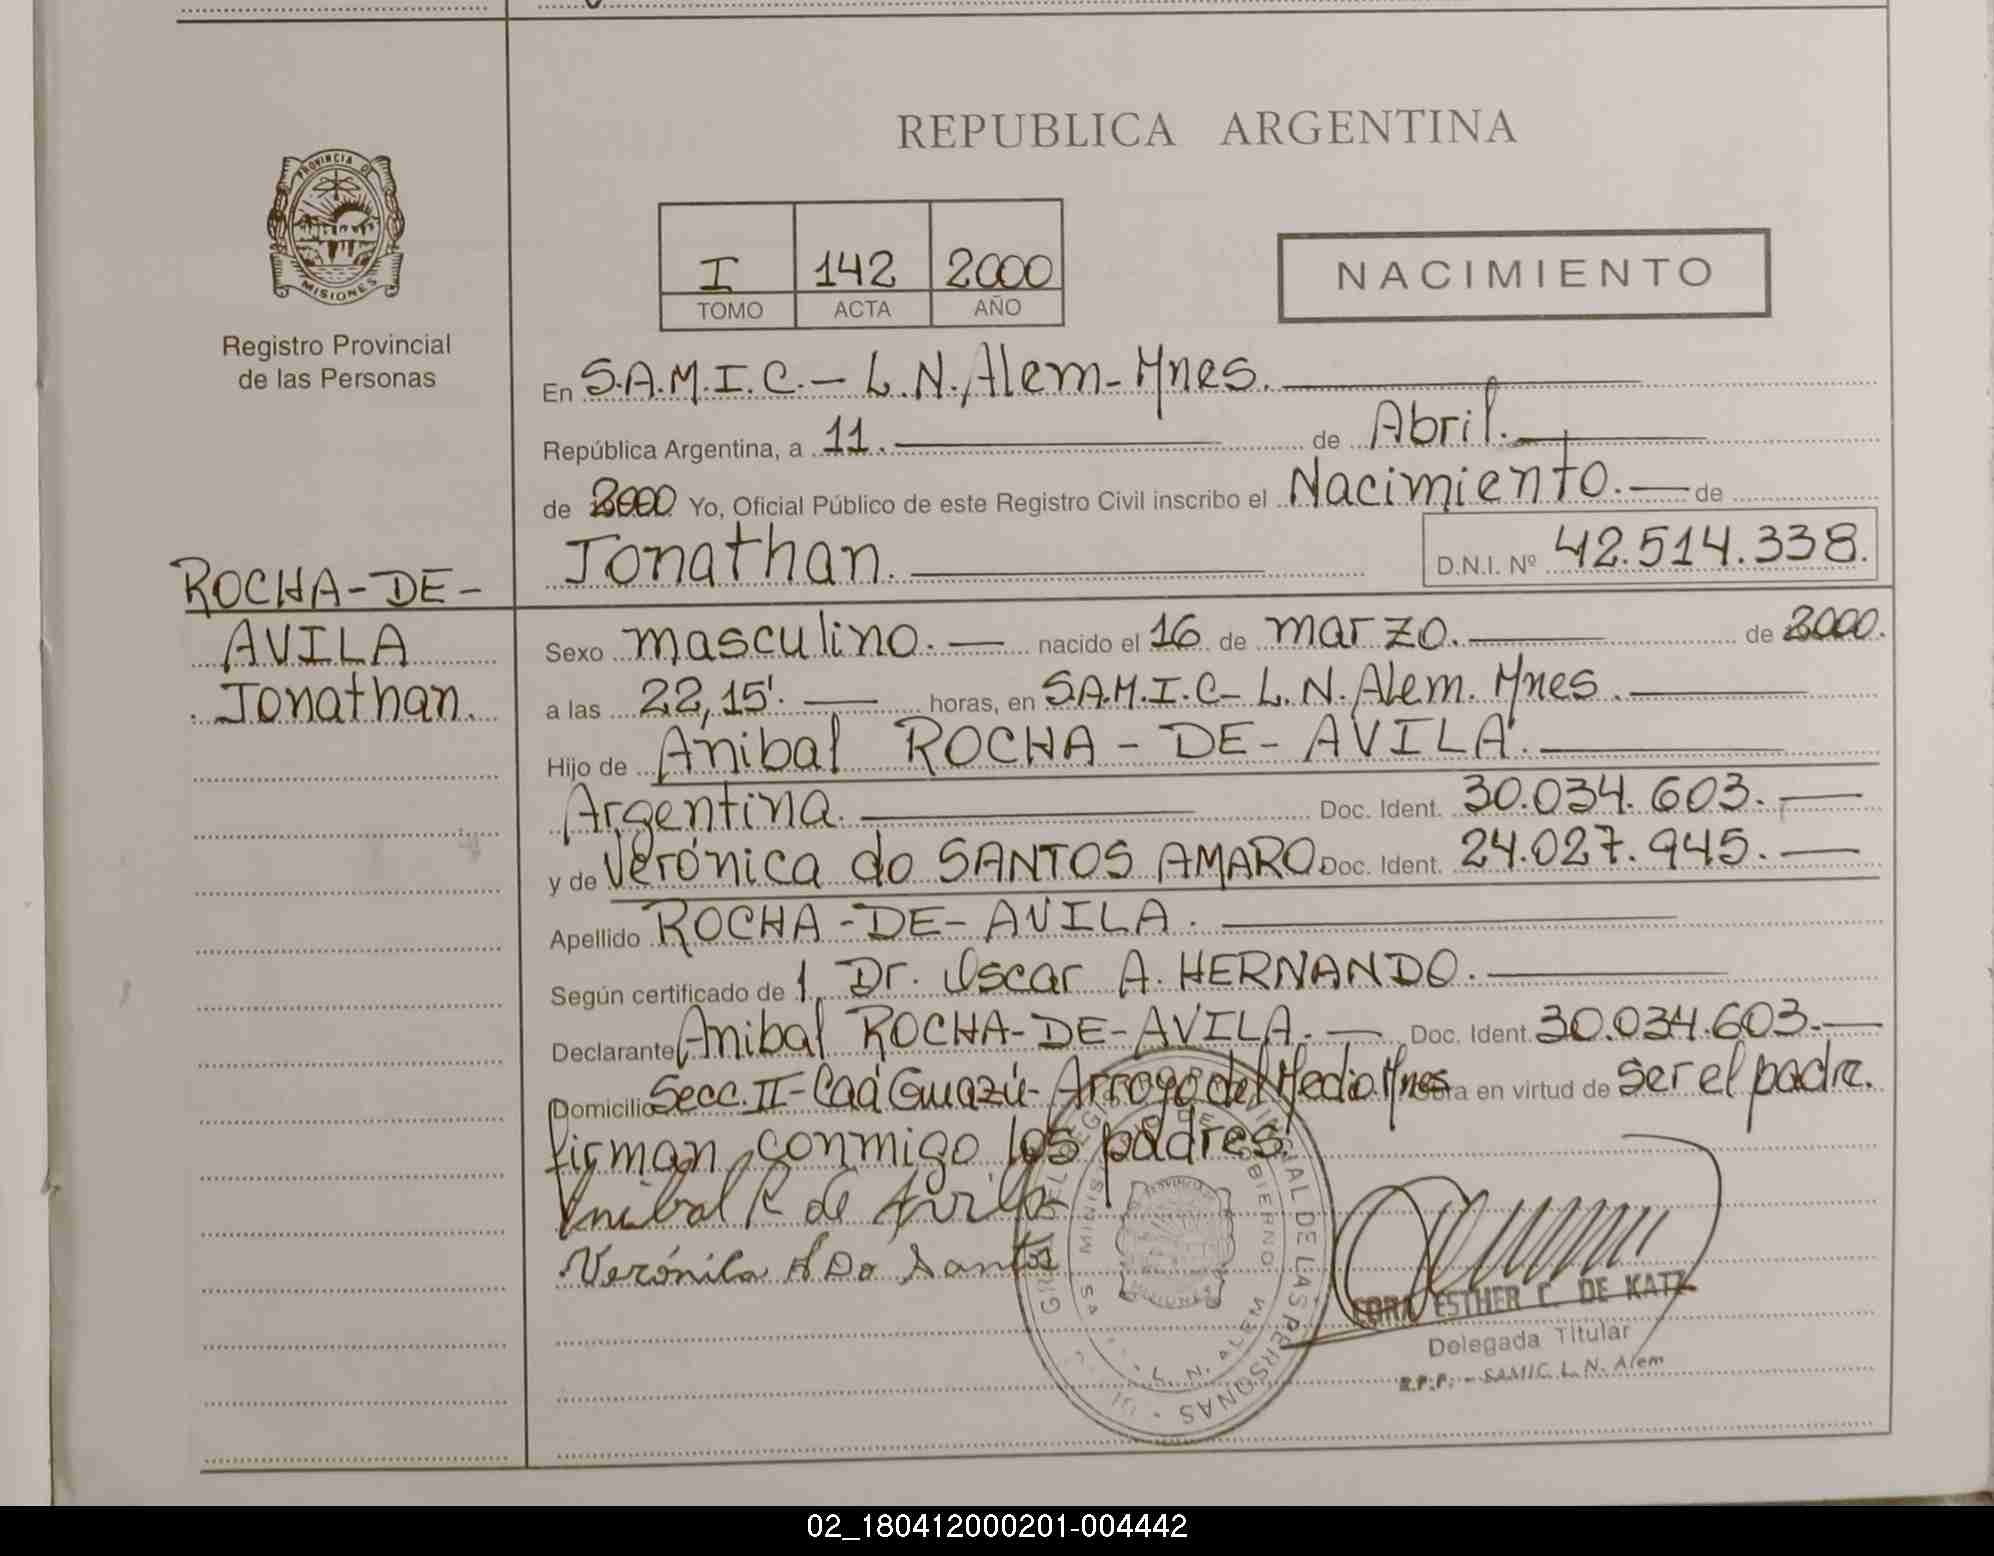 REPUBLICA ARGENTINA
PROVINCIA DE
MISIONES
Registro Provincial
de las Personas
I 142 2000
TOMO ACTA AÑO
NACIMIENTO
En S.A.M.I.C.- L.N.Alem-Mnes.
República Argentina, a 11. de Abril.
de 2000 Yo, Oficial Público de este Registro Civil inscribo el Nacimiento. de
Jonathan. D.N.I. Nº 42.514.338.
ROCHA-DE-
AVILA
Jonathan.
Sexo masculino. nacido el 16 de marzo. de 2000.
a las 22,15'. horas, en S.A.M.I.C- L.N.Alem. Mnes.
Hijo de Anibal ROCHA-DE-AVILA.
Argentina. Doc. Ident. 30.034.603.
y de Verónica do SANTOS AMARO Doc. Ident. 24.027.945.
Apellido ROCHA-DE-AVILA.
Según certificado de 1, Dr. Oscar A. HERNANDO.
Declarante Anibal ROCHA-DE-AVILA. Doc. Ident. 30.034.603.
Domicilio Secc. II-Caá Guazú-Arroyo del Medio Mnes en virtud de ser el padre.
firman conmigo los padres.
Anibal R de Avila
Verónica A Do Santos
L. N. ALEM
ESTHER C. DE KATZ
Delegada Titular
R.P.P. - SAMIC. L.N. Alem
02_180412000201-004442